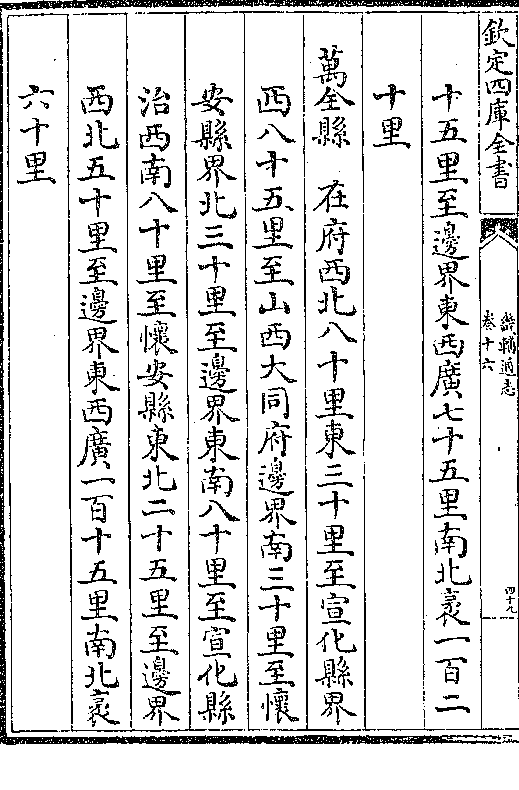 欽定四庫全書
畿輔通志
卷十六
四十九
十五里至邊界東西廣七十五里南北袤一百二
十里
萬全縣　在府西北八十里東三十里至宣化縣界
西八十五里至山西大同府邊界南三十里至懷
安縣界北三十里至邊界東南八十里至宣化縣
治西南八十里至懷安縣東北二十五里至邊界
西北五十里至邊界東西廣一百十五里南北袤
六十里